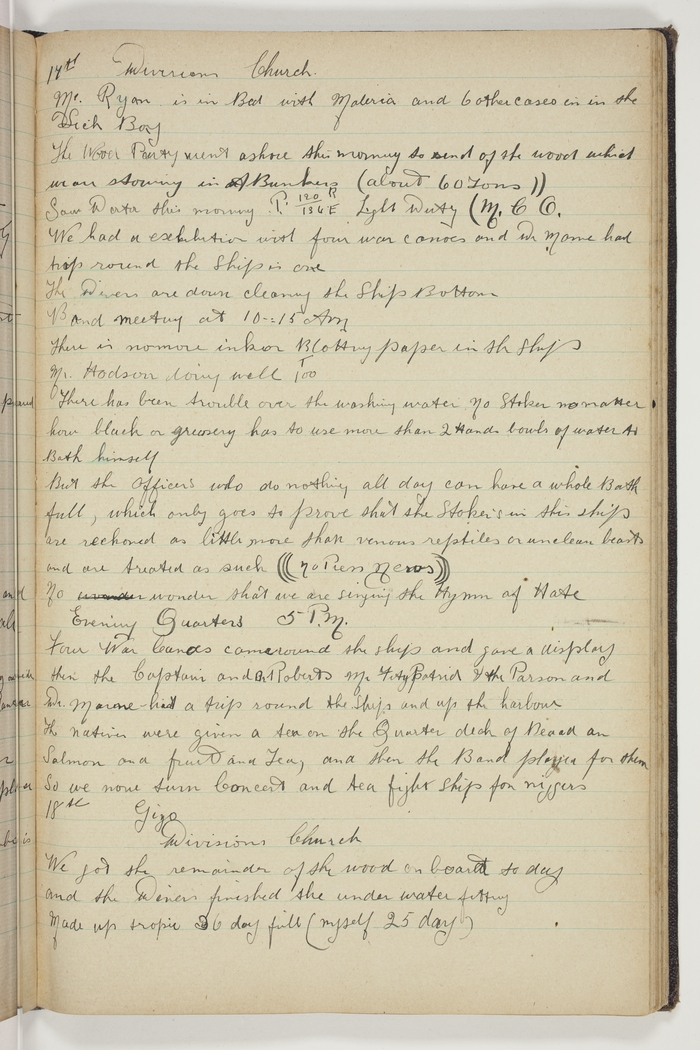 17th Divisions Church.
Mr. Ryan is in Bed with Maleria and 6 other cases in in the
Sick Bay
The Wood Party went ashore this morning to end of the wood which
we are stowing in A Bunkers (about 60 Tons))
Saw Doctor this morning P. 120/136 R/E Light Duty (M. C O.
We had a exhibition with four war canoes and Dr Marne had
trip round the Ship is one
The Divers are down cleaning the Ship Bottom
Band meeting at 10-:15 Am
There is no more ink or Blotting paper in the Ship
Mr. Hodson doing well T 100
There has been trouble over the washing water No Stoker no matter
how black or greasery has to use more than 2 Hands bowls of water to
Bath himself
But the Officers who do nothing all day can have a whole Bath
full, which only goes to prove that the Stoker's in this ship
are reckoned as little more than venous reptiles or unclean beasts
and are treated as such (((No Press News)))
No wonder that we are singing the Hymn of Hate
Evening Quarters 5 P.M.
Four War Canoes came around the ship and gave a display
then the Captain and Dr Roberts Mr Fitzpatrid & the Parson and
Dr. Marne had a trip round the Ships and up the harbour
The natives were given a tea on the Quarter deck of Bread an
Salmon and fruit and Tea, and then the Band played for them
So we now turn Concert and tea fight ship for niggers
18th Gizo
Divisions Church
We got the remainder of the wood on board to day
and the Divers finished the under water fitting
Made up tropic 36 day full (myself 25 day)